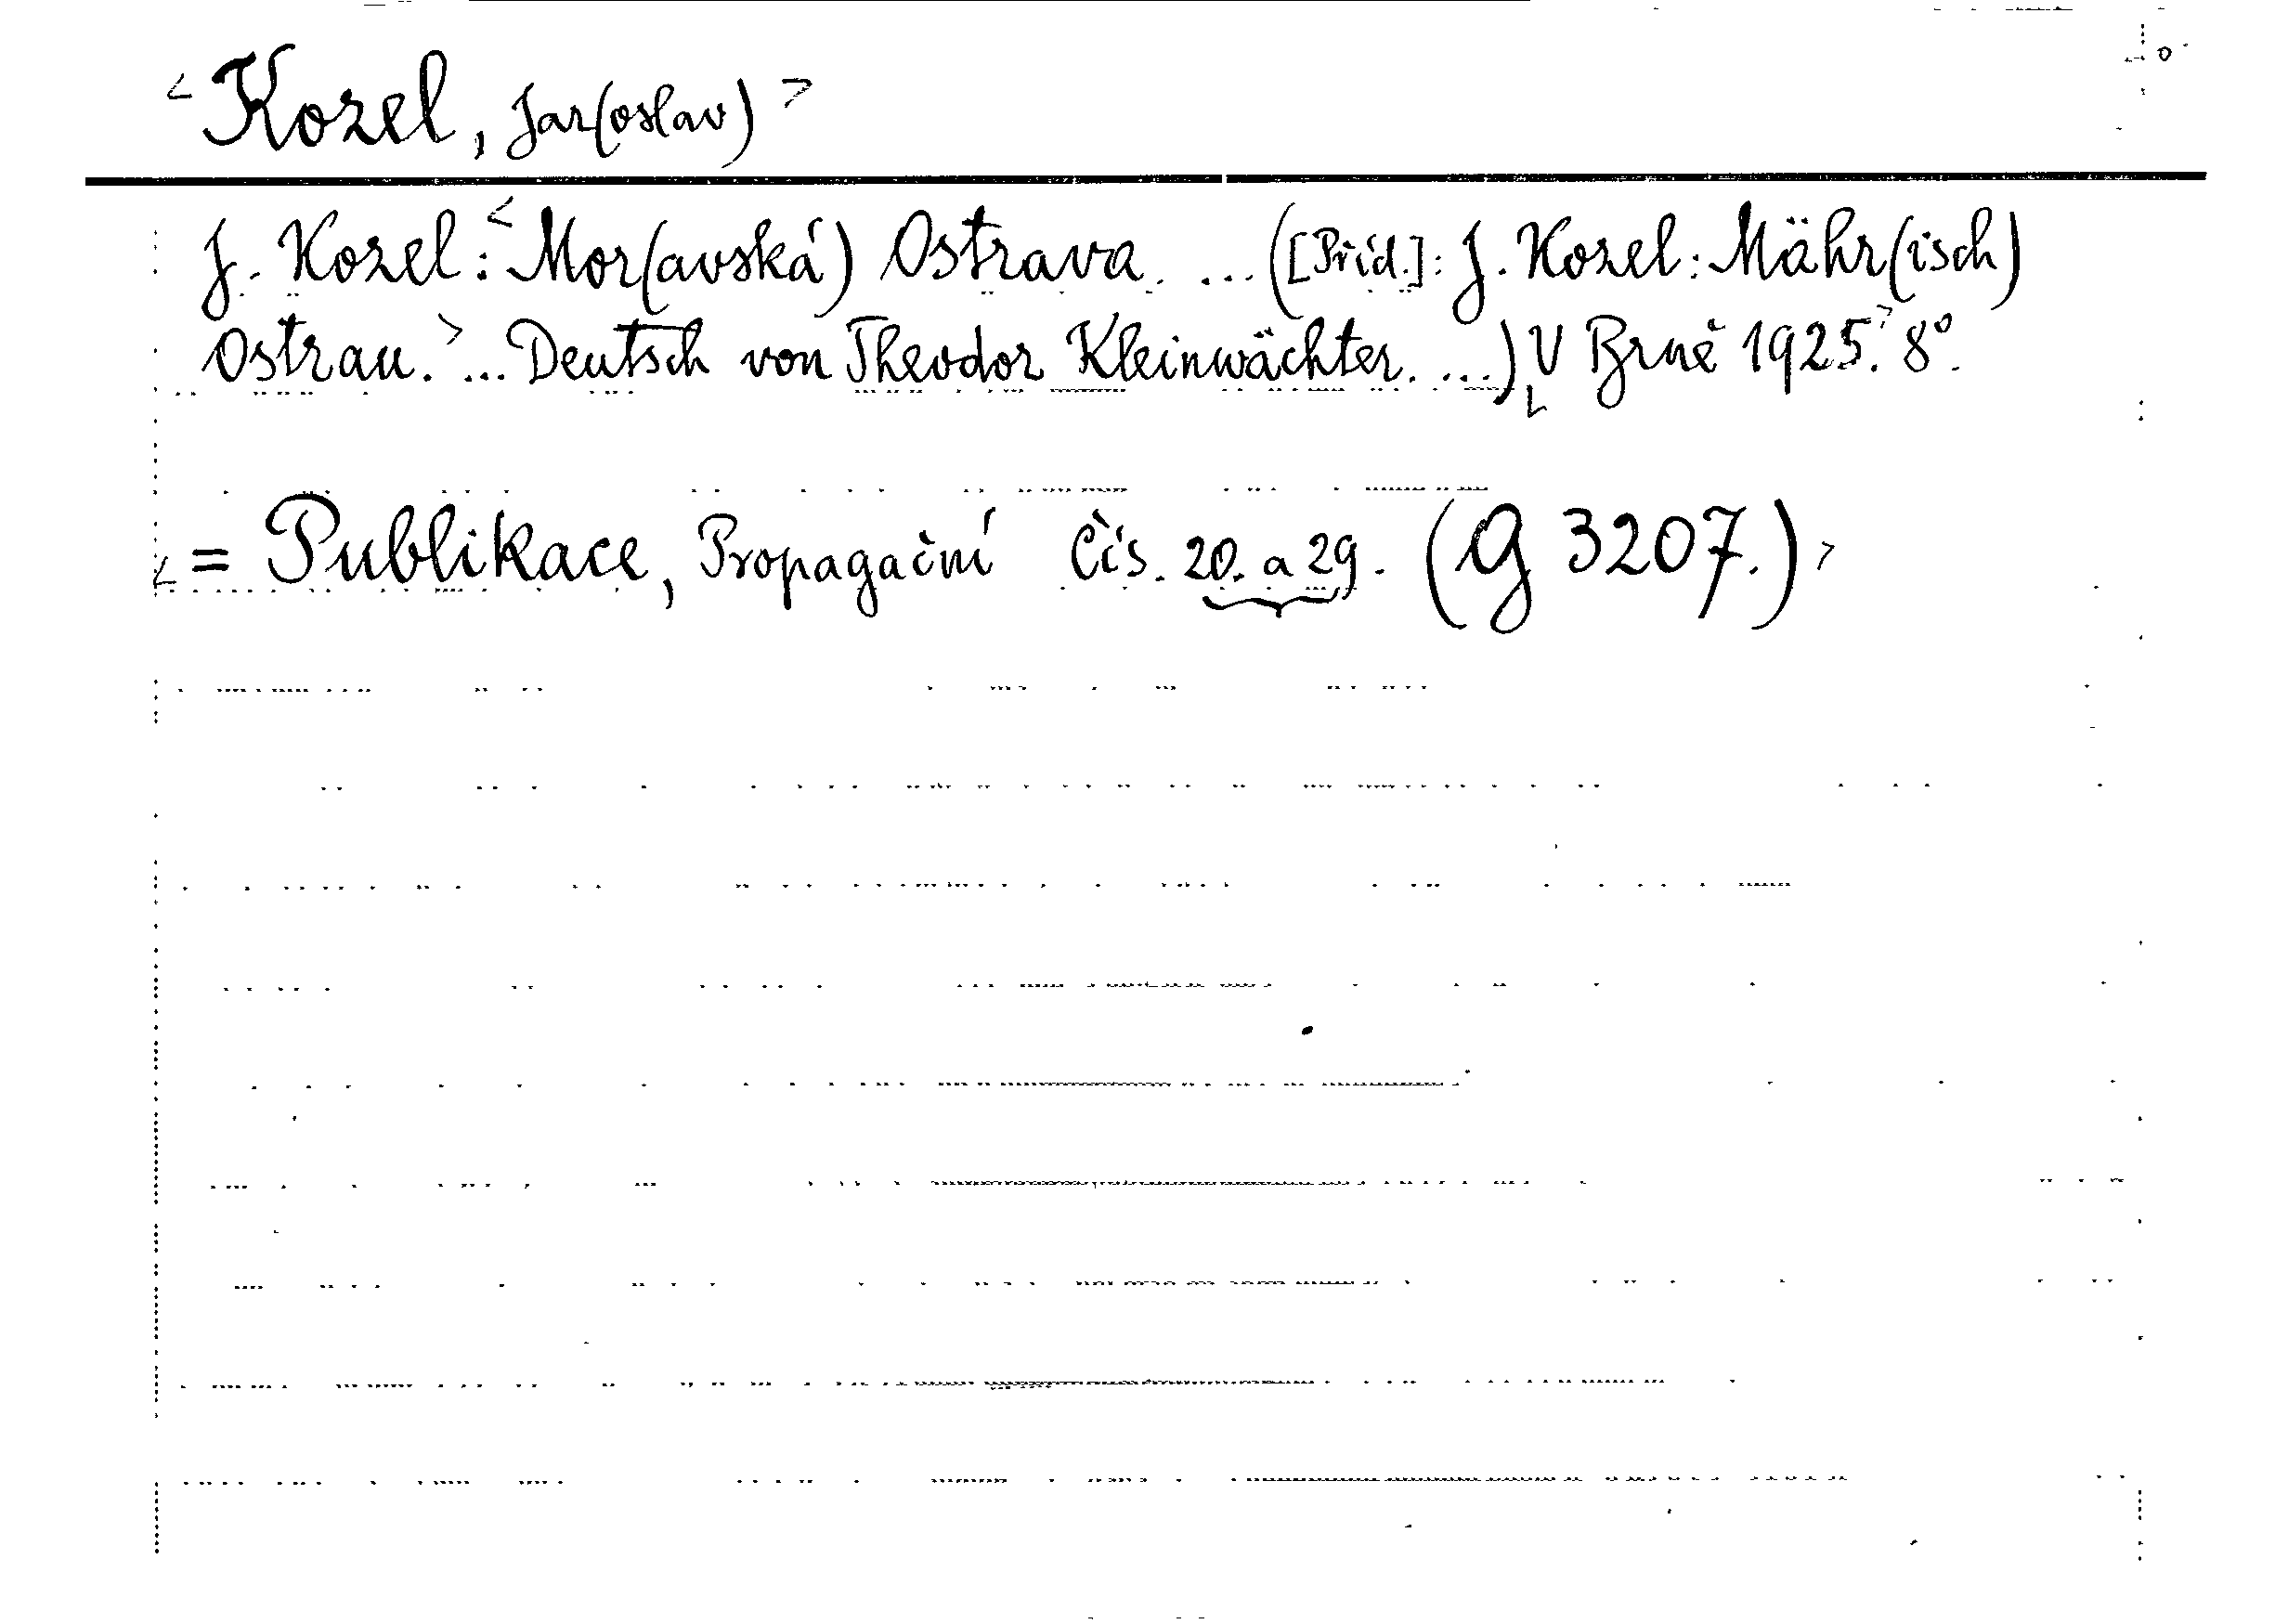 < Kozel, Jar(oslav) >
J. Kozel: < Mor(avská) Ostrava. ... ([Příd.]: J. Kozel: Mähr(isch)
Ostrau. > ... Deutsch von Theodor Kleinwächter. ...) < V Brně 1925. > 8°.
< = Publikace, Propagační Čís. 20. a 29. (G 3207.) >